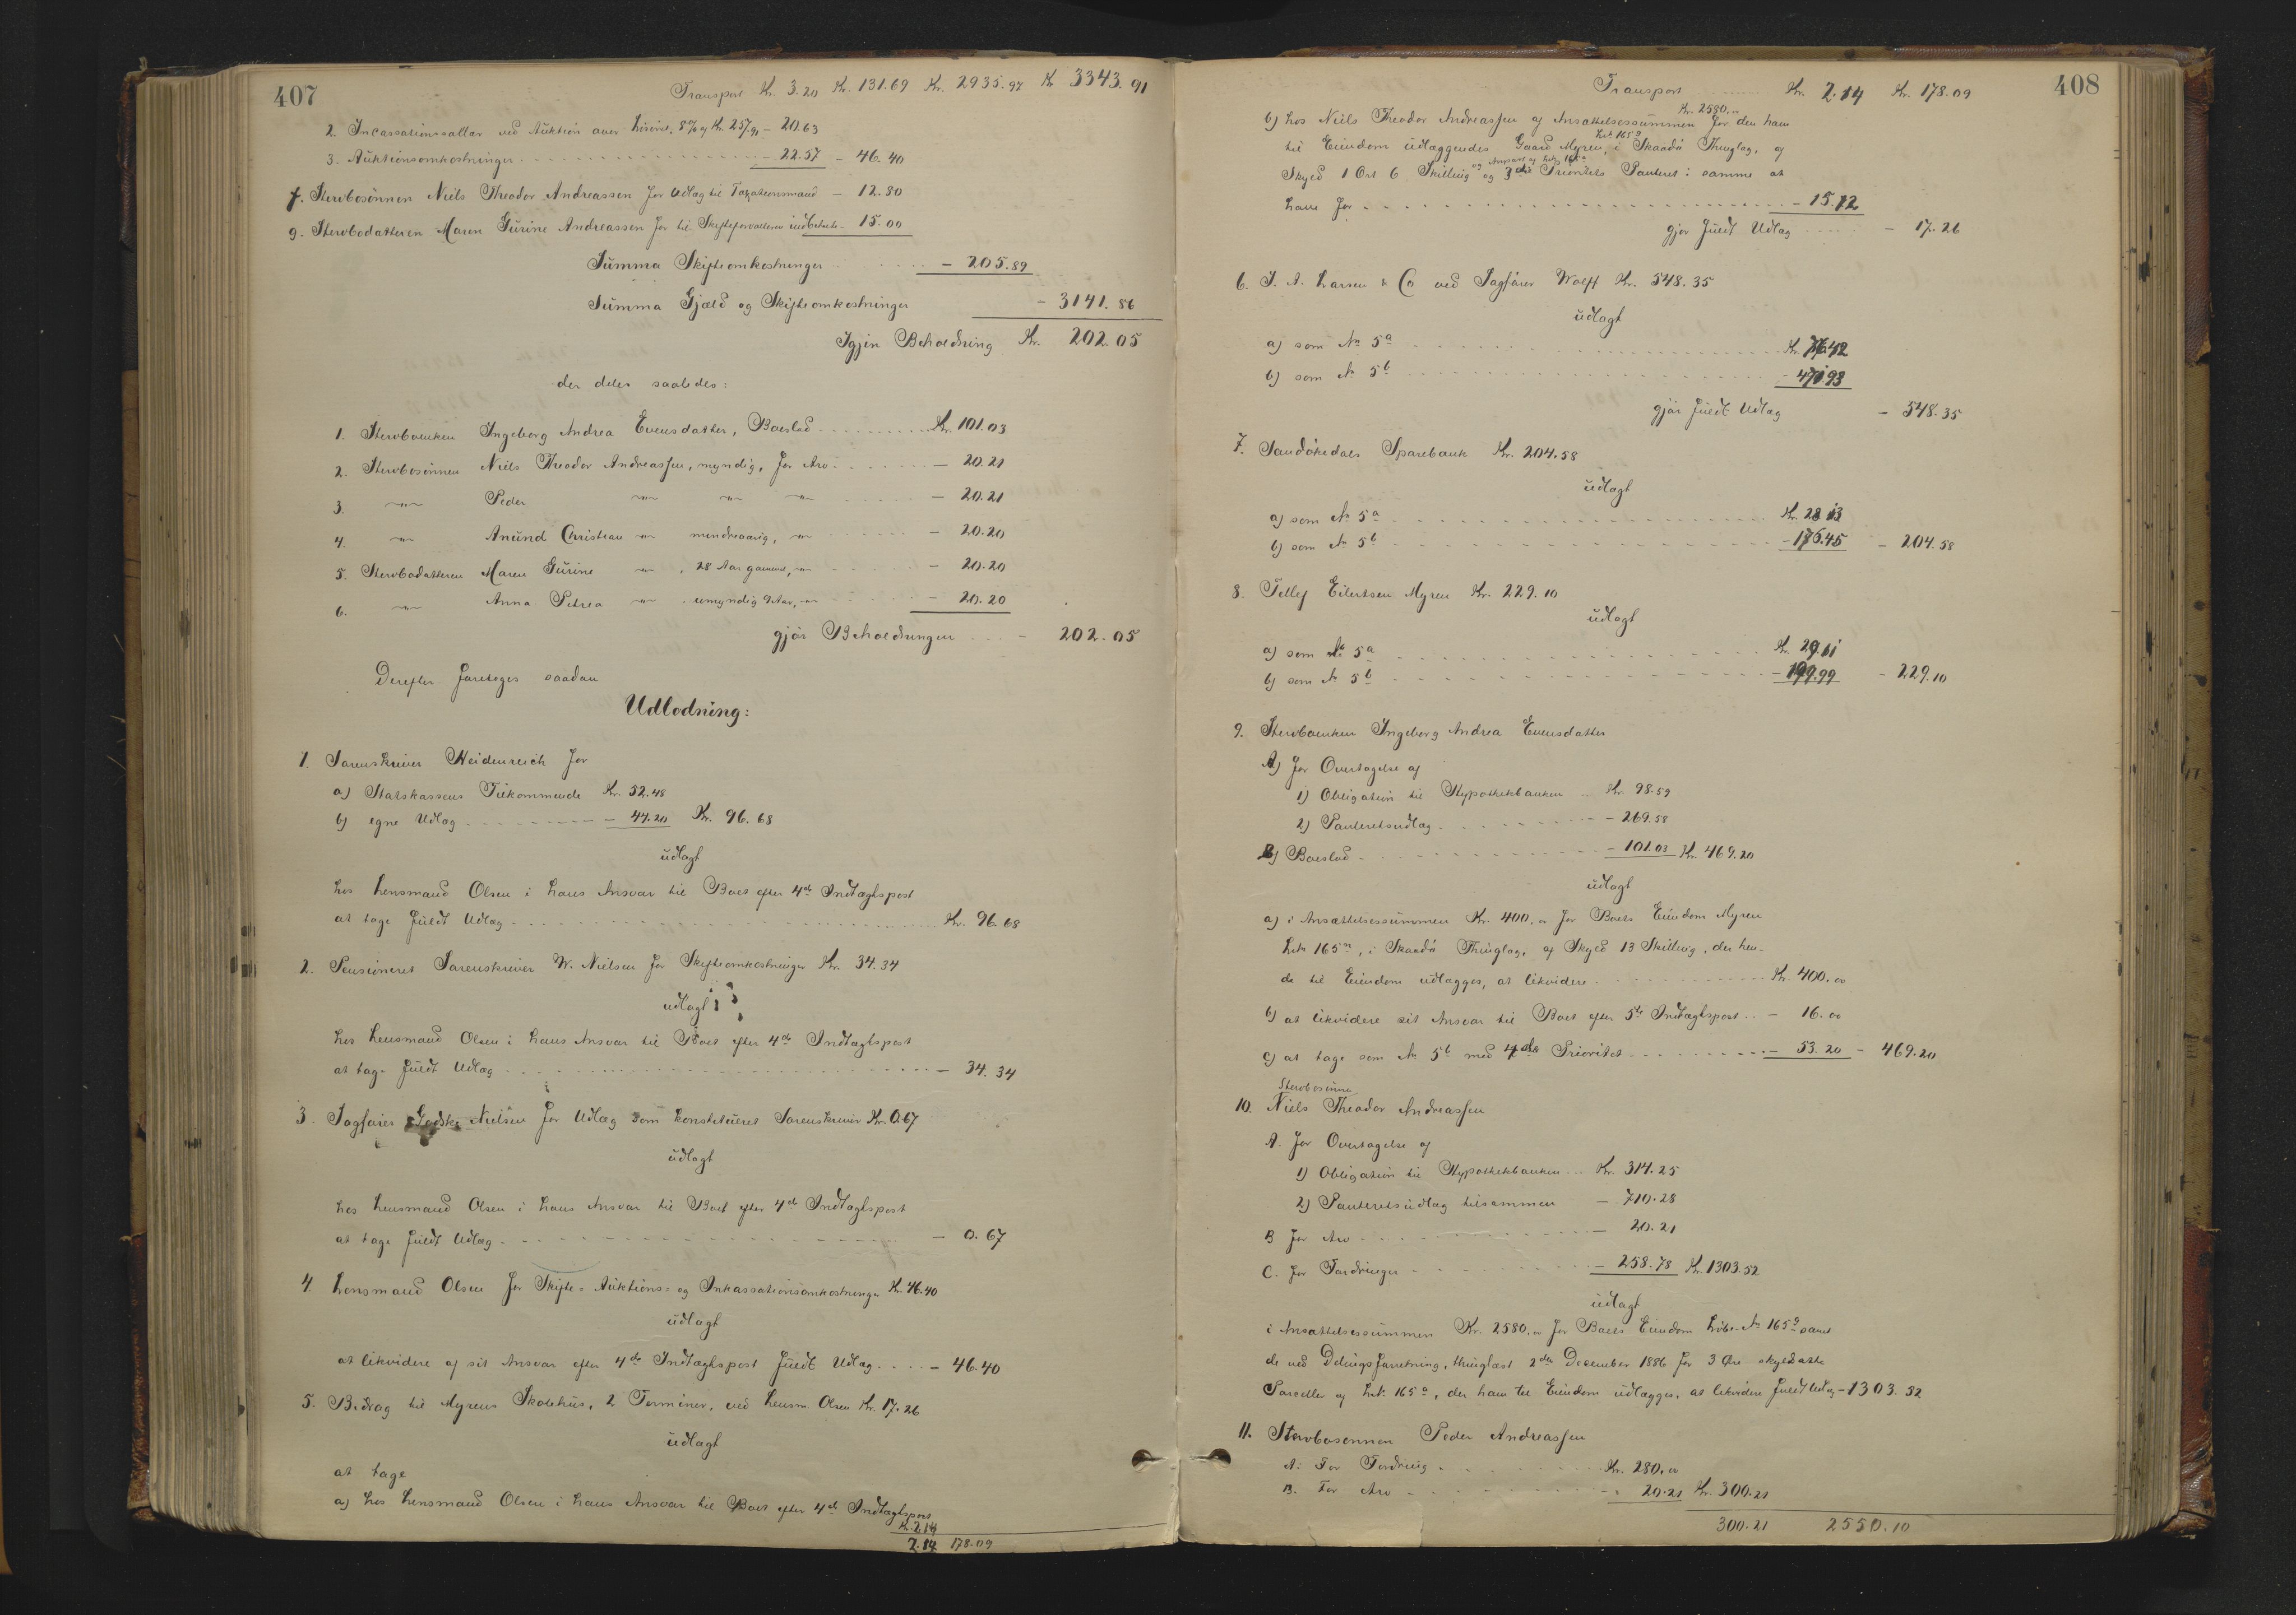 407
Transport Kr. 3.20 Kr. 131.69 Kr. 2935.97 Kr 3343.91
2. Incassationssallær ved Auktion over Løsøret, 8% af Kr. 257.91 - 20.63
3. Auktionsomkostninger - 22.57 - 46.40
f. Stervbosønnen Niels Theodor Andreassen for Udlæg til Taxationsmænd - 12.80
g. Stervbodatteren Maren Gurine Andreassen for til Skifteforvalteren indbetalt - 15.00
Summa Skifteomkostninger - 205.89
Summa Gjæld og Skifteomkostninger - 3141.86
Igjen Beholdning Kr. 202.05
der deles saaledes:
1. Stervboenken Ingeborg Andrea Evensdatter, Boeslod Kr. 101.03
2. Stervbosønnen Niels Theodor Andreassen, myndig, for Arv - 20.21
3. -"- Peder -"- -"- -"- - 20.21
4. -"- Anund Christian -"- mindreaarig, -"- - 20.20
5. Stervbodatteren Maren Gurine -"-, 28 Aar gammel, -"- - 20.20
6. -"- Anna Petrea -"- umyndig 9 Aar, -"- - 20.20
gjør Beholdningen - 202.05
Derefter foretoges saadan
Udlodning:
1. Sorenskriver Heidenreich for
a) Statskassens Tilkommende Kr. 52.48
b) egne Udlæg - 44.20 Kr. 96.68
udlagt
hos Lensmand Olsen i hans Ansvar til Boet efter 4de Indtægtspost
at tage fuldt Udlæg Kr. 96.68
2. Pensioneret Sorenskriver W. Nielsen for Skifteomkostninger Kr. 34.34
udlagt
hos Lensmand Olsen i hans Ansvar til Boet efter 4de Indtægtspost
at tage fuldt Udlæg - 34.34
3. Sagfører Godske Nielsen for Udlæg som konstitueret Sorenskriver Kr. 0.67
udlagt
hos Lensmand Olsen i hans Ansvar til Boet efter 4de Indtægtspost
at tage fuldt Udlæg - 0.67
4. Lensmand Olsen for Skifte- Auktions- og Inkassationsomkostninger Kr. 46.40
udlagt
at likvidere af sit Ansvar efter 4de Indtægtspost fuldt Udlæg - 46.40
5. Bidrag til Myrens Skolehus, 2 Terminer, ved Lensm. Olsen Kr. 17.26
udlagt
at tage
a) hos Lensmand Olsen i hans Ansvar til Boet efter 4de Indtægtspost
Kr. 2.14
2.14 178.09
408
Transport Kr. 2.14 Kr. 178.09
b) hos Niels Theodor Andreassen af Ansættelsessummen Kr. 2580.00 for den ham
til Eiendom udlæggendes Gaard Myren, Lnr 165a i Skaadø Thinglag, af
Skyld 1 Ort 6 Skilling og Anpart af Lnr 165a og 3die Prioritets Panteret i samme at
have for - 15.12
gjør fuldt Udlæg - 17.26
6. J. A. Larsen & Co ved Sagfører Wolff Kr. 548.35
udlagt
a) som No 5a Kr. 76.42
b) som No 5b - 471.93
gjør fuldt Udlæg - 548.35
7. Sandøkedals Sparebank Kr. 204.58
udlagt
a) som No 5a Kr. 28.13
b) som No 5b - 176.45 - 204.58
8. Tellef Eilertsen Myren Kr. 229.10
udlagt
a) som No 5a Kr. 29.11
b) som No 5b - 199.99 - 229.10
9. Stervboenken Ingeborg Andrea Evensdatter
A) for Overtagelse af
1) Obligation til Hypothekbanken Kr. 98.59
2) Panteretsudlæg - 269.58
B) Boeslod - 101.03 Kr. 469.20
udlagt
a) i Ansættelsessummen Kr. 400.00 for Boets Eiendom Myren
Lnr 165m, i Skaadø Thinglag, af Skyld 13 Skilling, der hen-
de til Eiendom udlægges, at likvidere Kr. 400.00
b) at likvidere sit Ansvar til Boet efter 5te Indtægtspost - 16.00
c) at tage som No 5b med 4de Prioritet - 53.20 - 469.20
10. Stervbosønnen
Niels Theodor Andreassen
A. for Overtagelse af
1) Obligation til Hypothekbanken Kr. 314.25
2) Panteretsudlæg tilsammen - 710.28
B for Arv - 20.21
C. for Fordringer - 258.78 Kr. 1303.52
udlagt
i Ansættelsessummen Kr. 2580.00 for Boets Eiendom Løbe-No 165a samt
de ved Delingsforretning, thinglæst 2den December 1886 for 3 Øre skyldsatte
Parceller af Lnr. 165a, der ham til Eiendom udlægges, at likvidere fuldt Udlæg - 1303.52
11. Stervbosønnen Peder Andreassen
A. For Fordring Kr. 280.00
B. For Arv - 20.21 Kr. 300.21
300.21 2550.10